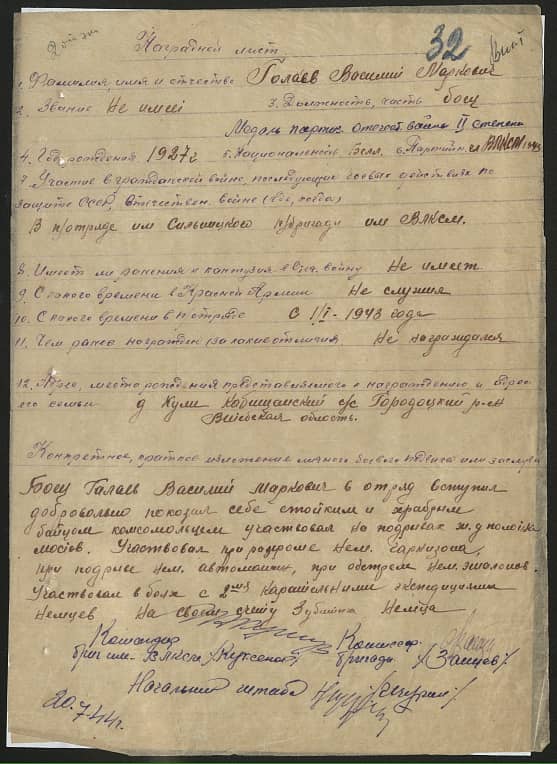 32
Наградной лист
1. Фамилия, имя и отчество Голаев Василий Маркович
2. Звание Не имеі 3. Должность, часть боец
Медаль партиз. отечест. войны II степени
4. Год рождения 1927 г 5. Национальность Белл. 6. Партийн. чл ВЛКСМ
7. Участие в гражданской войне, последующих боевых действиях по
защите СССР, отечествен. войне (где, когда)
В п/отряде им Сильницкого п/бригады им ВЛКСМ.
8. Имеет ли ранения и контузия в Отч. войну Не имеет
9. С какого времени в Красной Армии Не служил
10. С какого времени в п отряде С 1/I - 1943 года
11. Чем ранее награжден за какие отличия Не награждался
12. место рождения представляемого к награждению и адрес
его семьи д Кули Кабищанский с/с Городоцкий р-н
Витебская область.
Конкретное, краткое изложение личного боевого подвига или заслуги
Боец Галаев Василий Маркович в отряд вступил
добровольно показал себе стойким и храбрым
байцом комсомольцем участвовал на подривах ж.д полотна
мостов. Участвовал при розгроме нем. гарнизона,
при подрыве нем. автомашин, при обстреле нем. эшалонов.
Участвовал в боях с 2мя карательними экспедициями
немцев На своем счету 3 убитых немца
Командир Комиссар
бриг им. ВЛКСМ /Куксенок/ бригады /Зайцев/
Начальник штаба
20.7.44г.